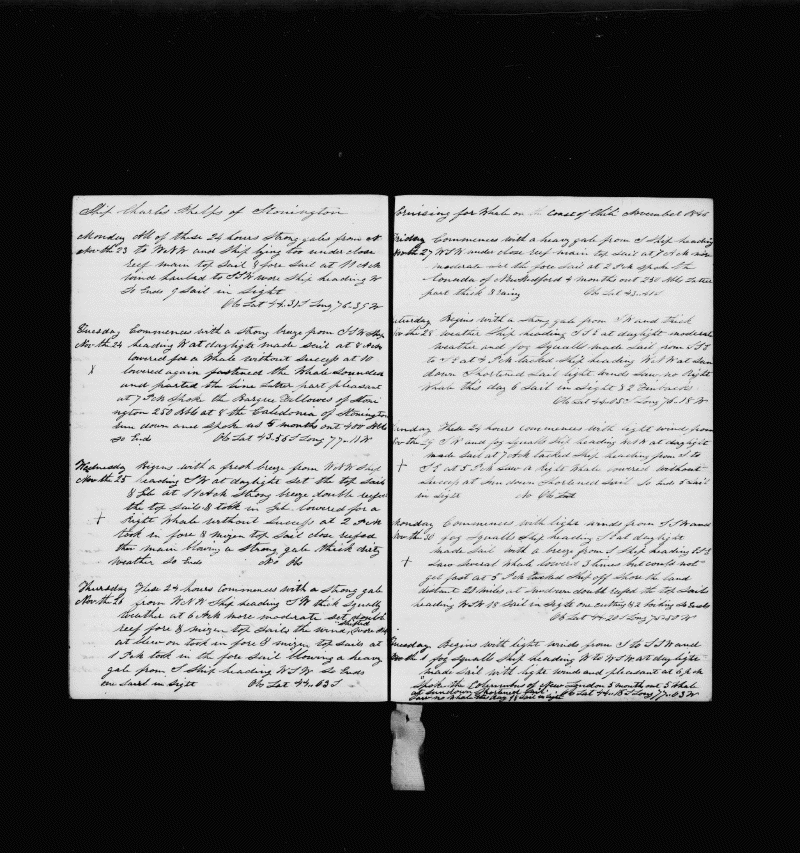 Ship Charles Phelps of Stonington
Monday All of these 24 hours Strong gales from N
Nov the 23 to WNW and Ship lying too under close
reef main top Sail & fore Sail at 11 AcK
wind hauled to SSW wore Ship heading W
So Ends 9 Sail in Sight
Ob Lat 44..31 S Long 76..39 W
Tuesday Commences with a Strong breze from SSW Ship
Nov the 24 heading W at daylight made Sail at 8 AcK
lowered for a Whale without Suceess at 10
X lowered again fastened the Whale Sounded
and parted the Line Latter part pleasant
at 7 PcK Spoke the Fellowes of Stoni
ngton 250 Bbls at 8 the Caledonia of Stonington
sun down once Spoke us 5 months out 400 Bbls
So Ends Ob Lat 43..36 S Long 77..11 W
Wednesday Begins with a fresh breeze from WNW Ship
Nov the 25 heading SW at daylight Set the top Sails
& Jib at 11 AcK Strong breeze double reefed
the top Sails & took in Jib lowered for a
+ Right Whale without Suceess at 2 PcK
took in fore & mizen top Sail close reefed
the main blowing a Strong gale thick dirty
weather So Ends No Obs
Thursday These 24 hours commences with a Strong gale
Nov the 26 from WNW Ship heading SW thick Squally
weather at 6 AcK more moderate Set double
reef fore & mizen top Sails the wind Shifted
at took in fore & mizen top Sails at
1 PcK took in the fore Sail blowing a heavy
gale from S Ship heading WSW So Ends
one Sail in Sight Ob Lat 44..03 S
Cruising for Whale on the Coast of Chili November 1846
Friday Commences with a heavy gale from S Ship heading
Nov the 27 WSW under close reef main top Sail at 7 AcK more
moderate Set the fore Sail at 2 PcK Spoke the
Canada of New Bedford 4 months out 230 Bbls Latter
part thick & rainy Ob Lat 43..41 S
Saturday Begins with a Strong gale from SW and thick
Nov the 28 weather Ship heading SSE at daylight moderat
weather and fog Squalls made Sail from SSE
to SE at 4 PcK tacked Ship heading WSW at Sun
down Shortened Sail light winds Saw no Right
Whale this day 6 Sail in Sight & 2 Finbacks
Ob Lat 44..05 S Long 76..18 W
Sunday These 24 hours commences with light wind from
Nov the 29 SW and fog Squalls Ship heading WSW at daylight
made Sail at 7 AcK tacked Ship heading from S to
+ SE at 5 PcK Saw a Right Whale lowered without
Suceess at Sun down Shortened Sail So Ends 5 Sail
in Sight No Ob Lat
Monday Commences with light winds from SSW and
Nov the 30 fog Squalls Ship heading SE at daylight
made Sail with a breeze from S Ship heading ESE
+ Saw Several Whale lowered 3 times but could not
get fast at 5 PcK tacked Ship off Shore the land
distant 20 miles at Sundown double reefed the top Sails
heading WSW 18 Sail in Sight one cutting & 2 boiling So Ends
Ob Lat 44..20 S Long 75..50 W
Tuesday Begins with light winds from S to SSW and
fog Squalls Ship heading W to WSW at daylight
made Sail with light winds and pleasant at 6 PcK
Spoke the Columbus of New London 5 month out 5 Whale
at Sundown Shortened Sail Ob Lat 44..18 S Long 77..03 W
Saw no Whale this day 18 Sail in Sight